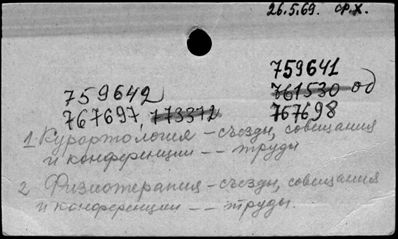 26.5.69. ср.х.
759641
759642 761530 од
767697, 773372 767698
1. Курортология – съезды, совещания
и конференции – – труды
2. Физиотерапия – съезды, совещания
и конференции – – труды.